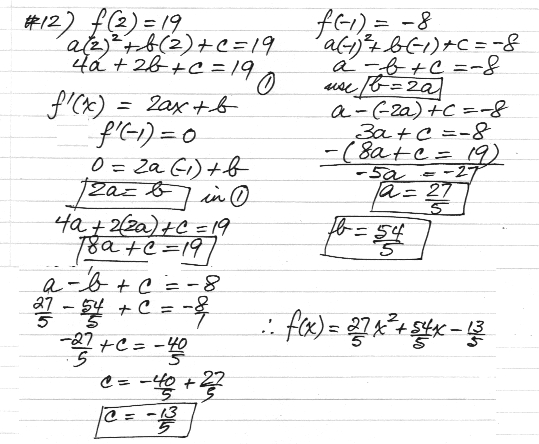 #12) f(2) = 19
a(2)² + b(2) + c = 19
4a + 2b + c = 19 ①
f'(x) = 2ax + b
f'(-1) = 0
0 = 2a(-1) + b
2a = b in ①
4a + 2(2a) + c = 19
8a + c = 19
f(-1) = -8
a(-1)² + b(-1) + c = -8
a - b + c = -8
use b = 2a
a - (-2a) + c = -8
3a + c = -8
-(8a + c = 19)
-5a = -27
a = 27/5
b = 54/5
a - b + c = -8
27/5 - 54/5 + c = -8/1
-27/5 + c = -40/5
c = -40/5 + 27/5
c = -13/5
∴ f(x) = 27/5 x² + 54/5 x - 13/5